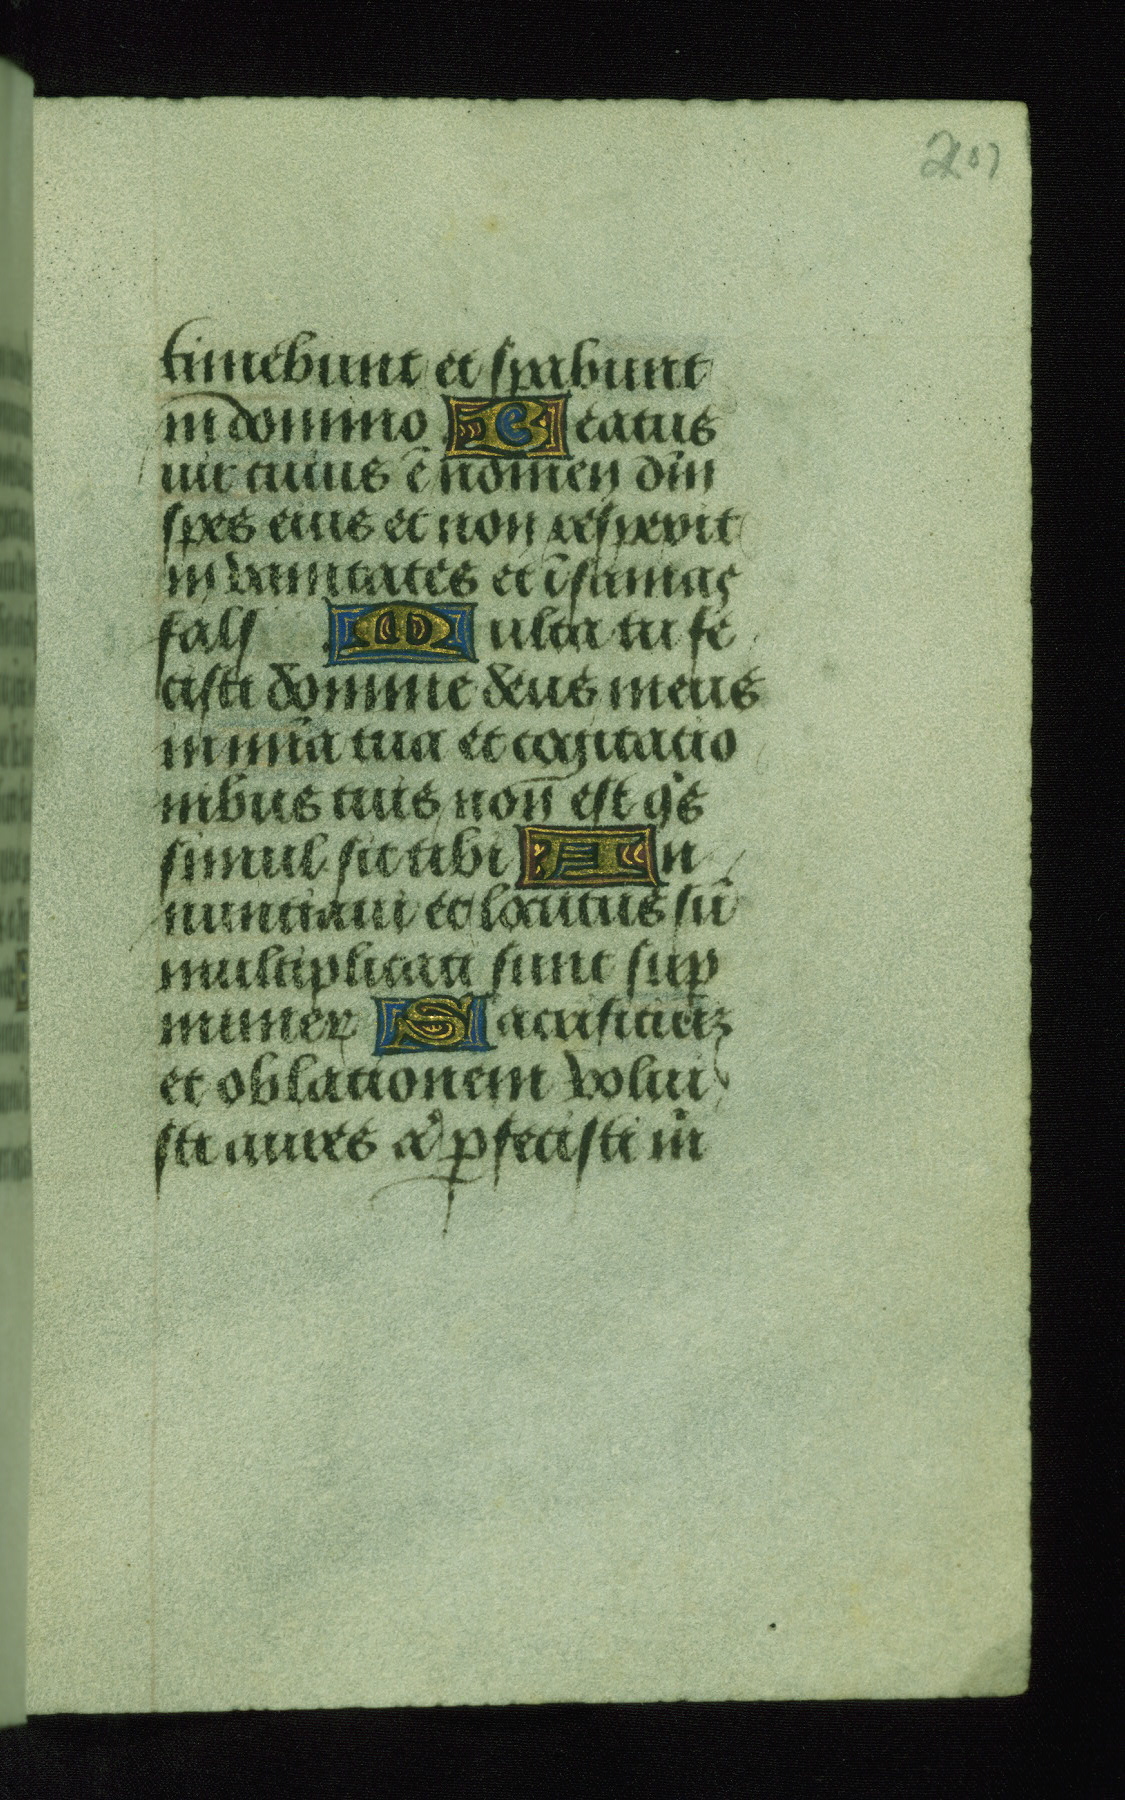 207
timebunt et spabunt
in domino Beatus
uir cuius ē nomen dn̄i
spes eius et non respexit
in vanitates et īsanias
fals Multa tu fe
cisti domine deus meus
mirīa tua et cogitatio
nibus tuis non̄ est qͥs
similis sit tibi An
nunciaui et locutus sū
multiplicati sunt sup
numer Sacrificiū
et oblationem volui
sti aures aͧ ꝑfecisti m̄